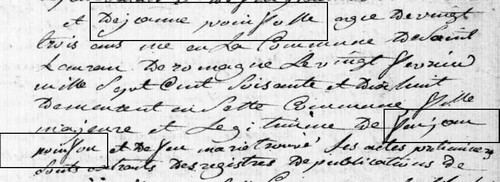 et De jeanne poinssotte agée de vingt
trois ans née en La Commune De saint
Laurent De romagne Le vingt fevrier
mille Sept Cent Soixante et Dix huit
Demeurent en Cette Commune fille
majeure et Legitimme De feu jean
poinsson et De feu marie trouvé, Les actes preliminaires
sont extraits des registres de publications de